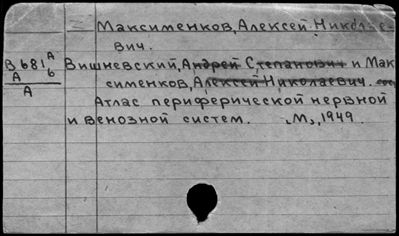 Максименков, Алексей Николае-
вич.
В 681 А
А б
А
Вишневский, Андрей Степанович и Мак
сименков, Алексей Николаевич.
Атлас периферической нервной
и венозной систем. М., 1949.